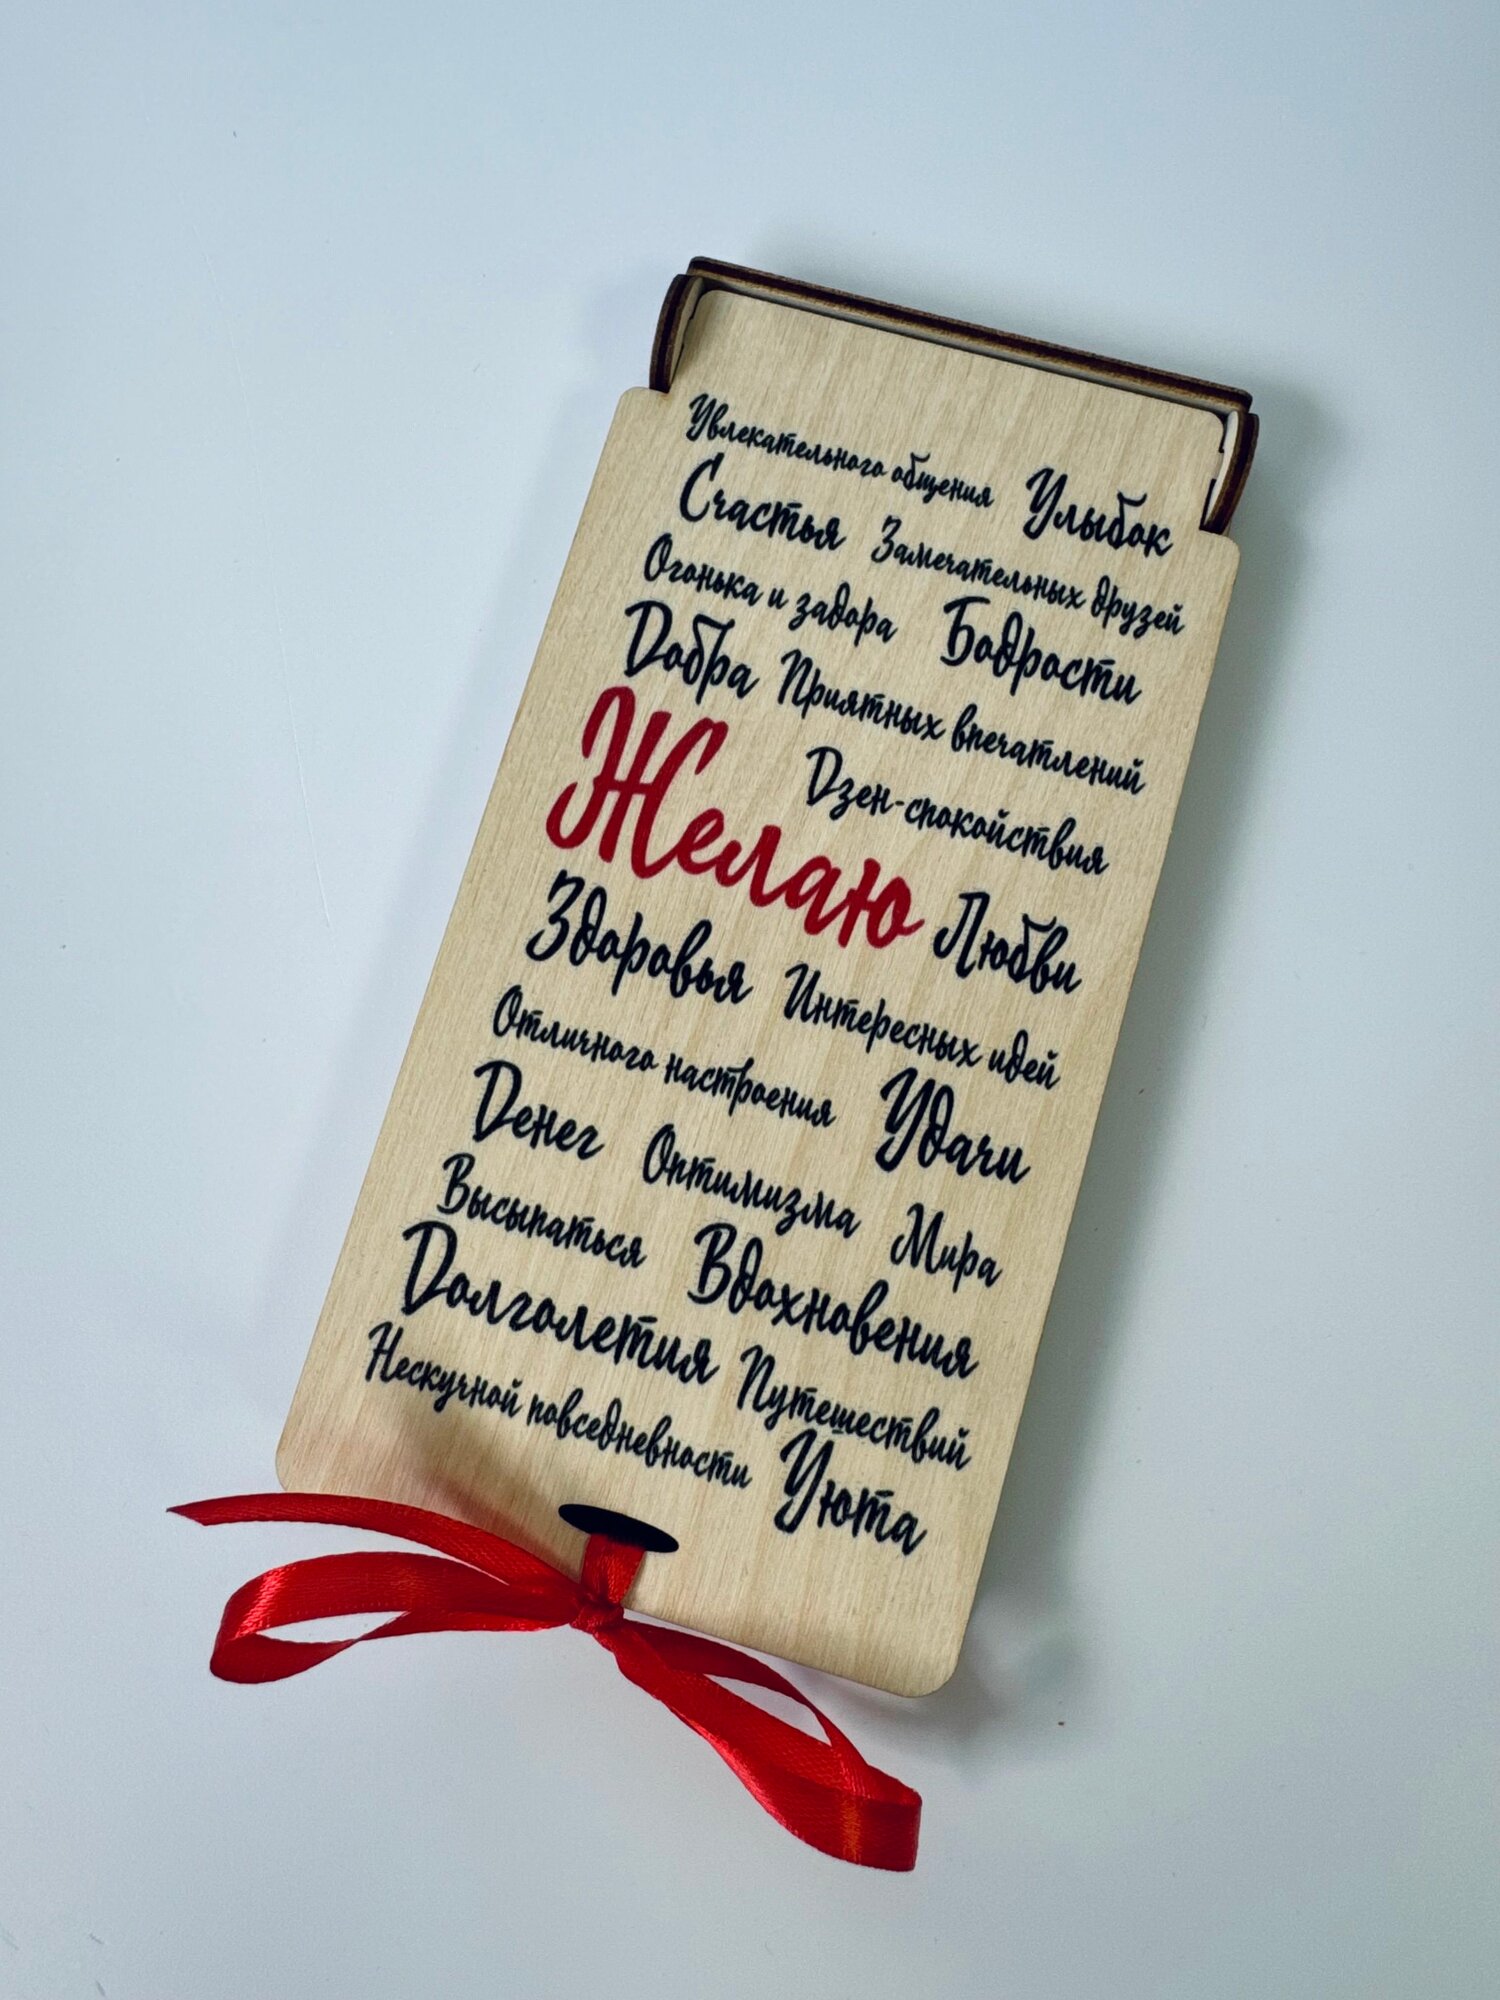 Увлекательного общения Улыбок
Счастья Замечательных друзей
Огонька и задора Бодрости
Добра Приятных впечатлений
Дзен-спокойствия
Желаю Любви
Здоровья Интересных идей
Отличного настроения Удачи
Денег Оптимизма Мира
Высыпаться Вдохновения
Долголетия Путешествий
Нескучной повседневности Уюта